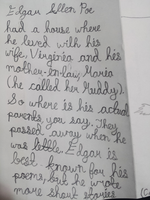 Edgar Allen Poe
had a house where
he lived with his
wife, Virginia and his
mother-in-law, Maria
(he called her Muddy).
So where is his actual
parents you say. They
passed away when he
was little. Edgar is
best known for his
poems, but he wrote
more short stories